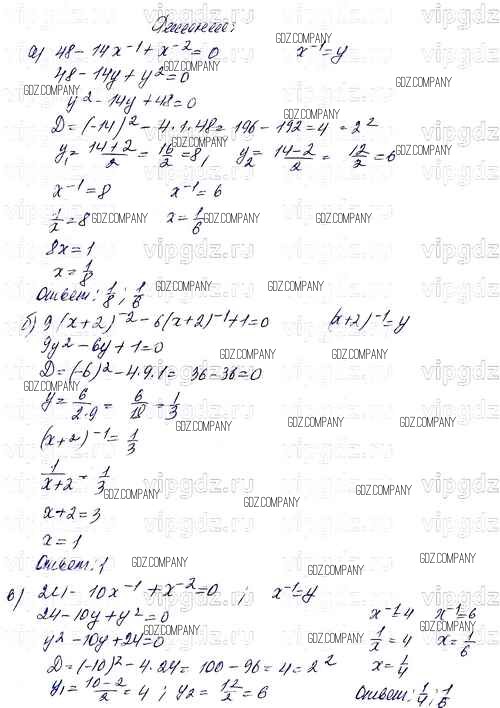 Решение:
а) 48 - 14x⁻¹ + x⁻² = 0        x⁻¹ = y
48 - 14y + y² = 0
y² - 14y + 48 = 0
D = (-14)² - 4·1·48 = 196 - 192 = 4 = 2²
y₁ = (14+2)/2 = 16/2 = 8,    y₂ = (14-2)/2 = 12/2 = 6
x⁻¹ = 8        x⁻¹ = 6
1/x = 8        x = 1/6
8x = 1
x = 1/8
Ответ: 1/8; 1/6
б) 9(x+2)⁻² - 6(x+2)⁻¹ + 1 = 0        (x+2)⁻¹ = y
9y² - 6y + 1 = 0
D = (-6)² - 4·9·1 = 36 - 36 = 0
y = 6/(2·9) = 6/18 = 1/3
(x+2)⁻¹ = 1/3
1/(x+2) = 1/3
x + 2 = 3
x = 1
Ответ: 1
в) 24 - 10x⁻¹ + x⁻² = 0 ;    x⁻¹ = y
24 - 10y + y² = 0        x⁻¹ = 4    x⁻¹ = 6
y² - 10y + 24 = 0        1/x = 4    x = 1/6
D = (-10)² - 4·24 = 100 - 96 = 4 = 2²        x = 1/4
y₁ = (10-2)/2 = 4 ; y₂ = 12/2 = 6        Ответ: 1/4; 1/6
GDZ.COMPANY
vipgdz.ru